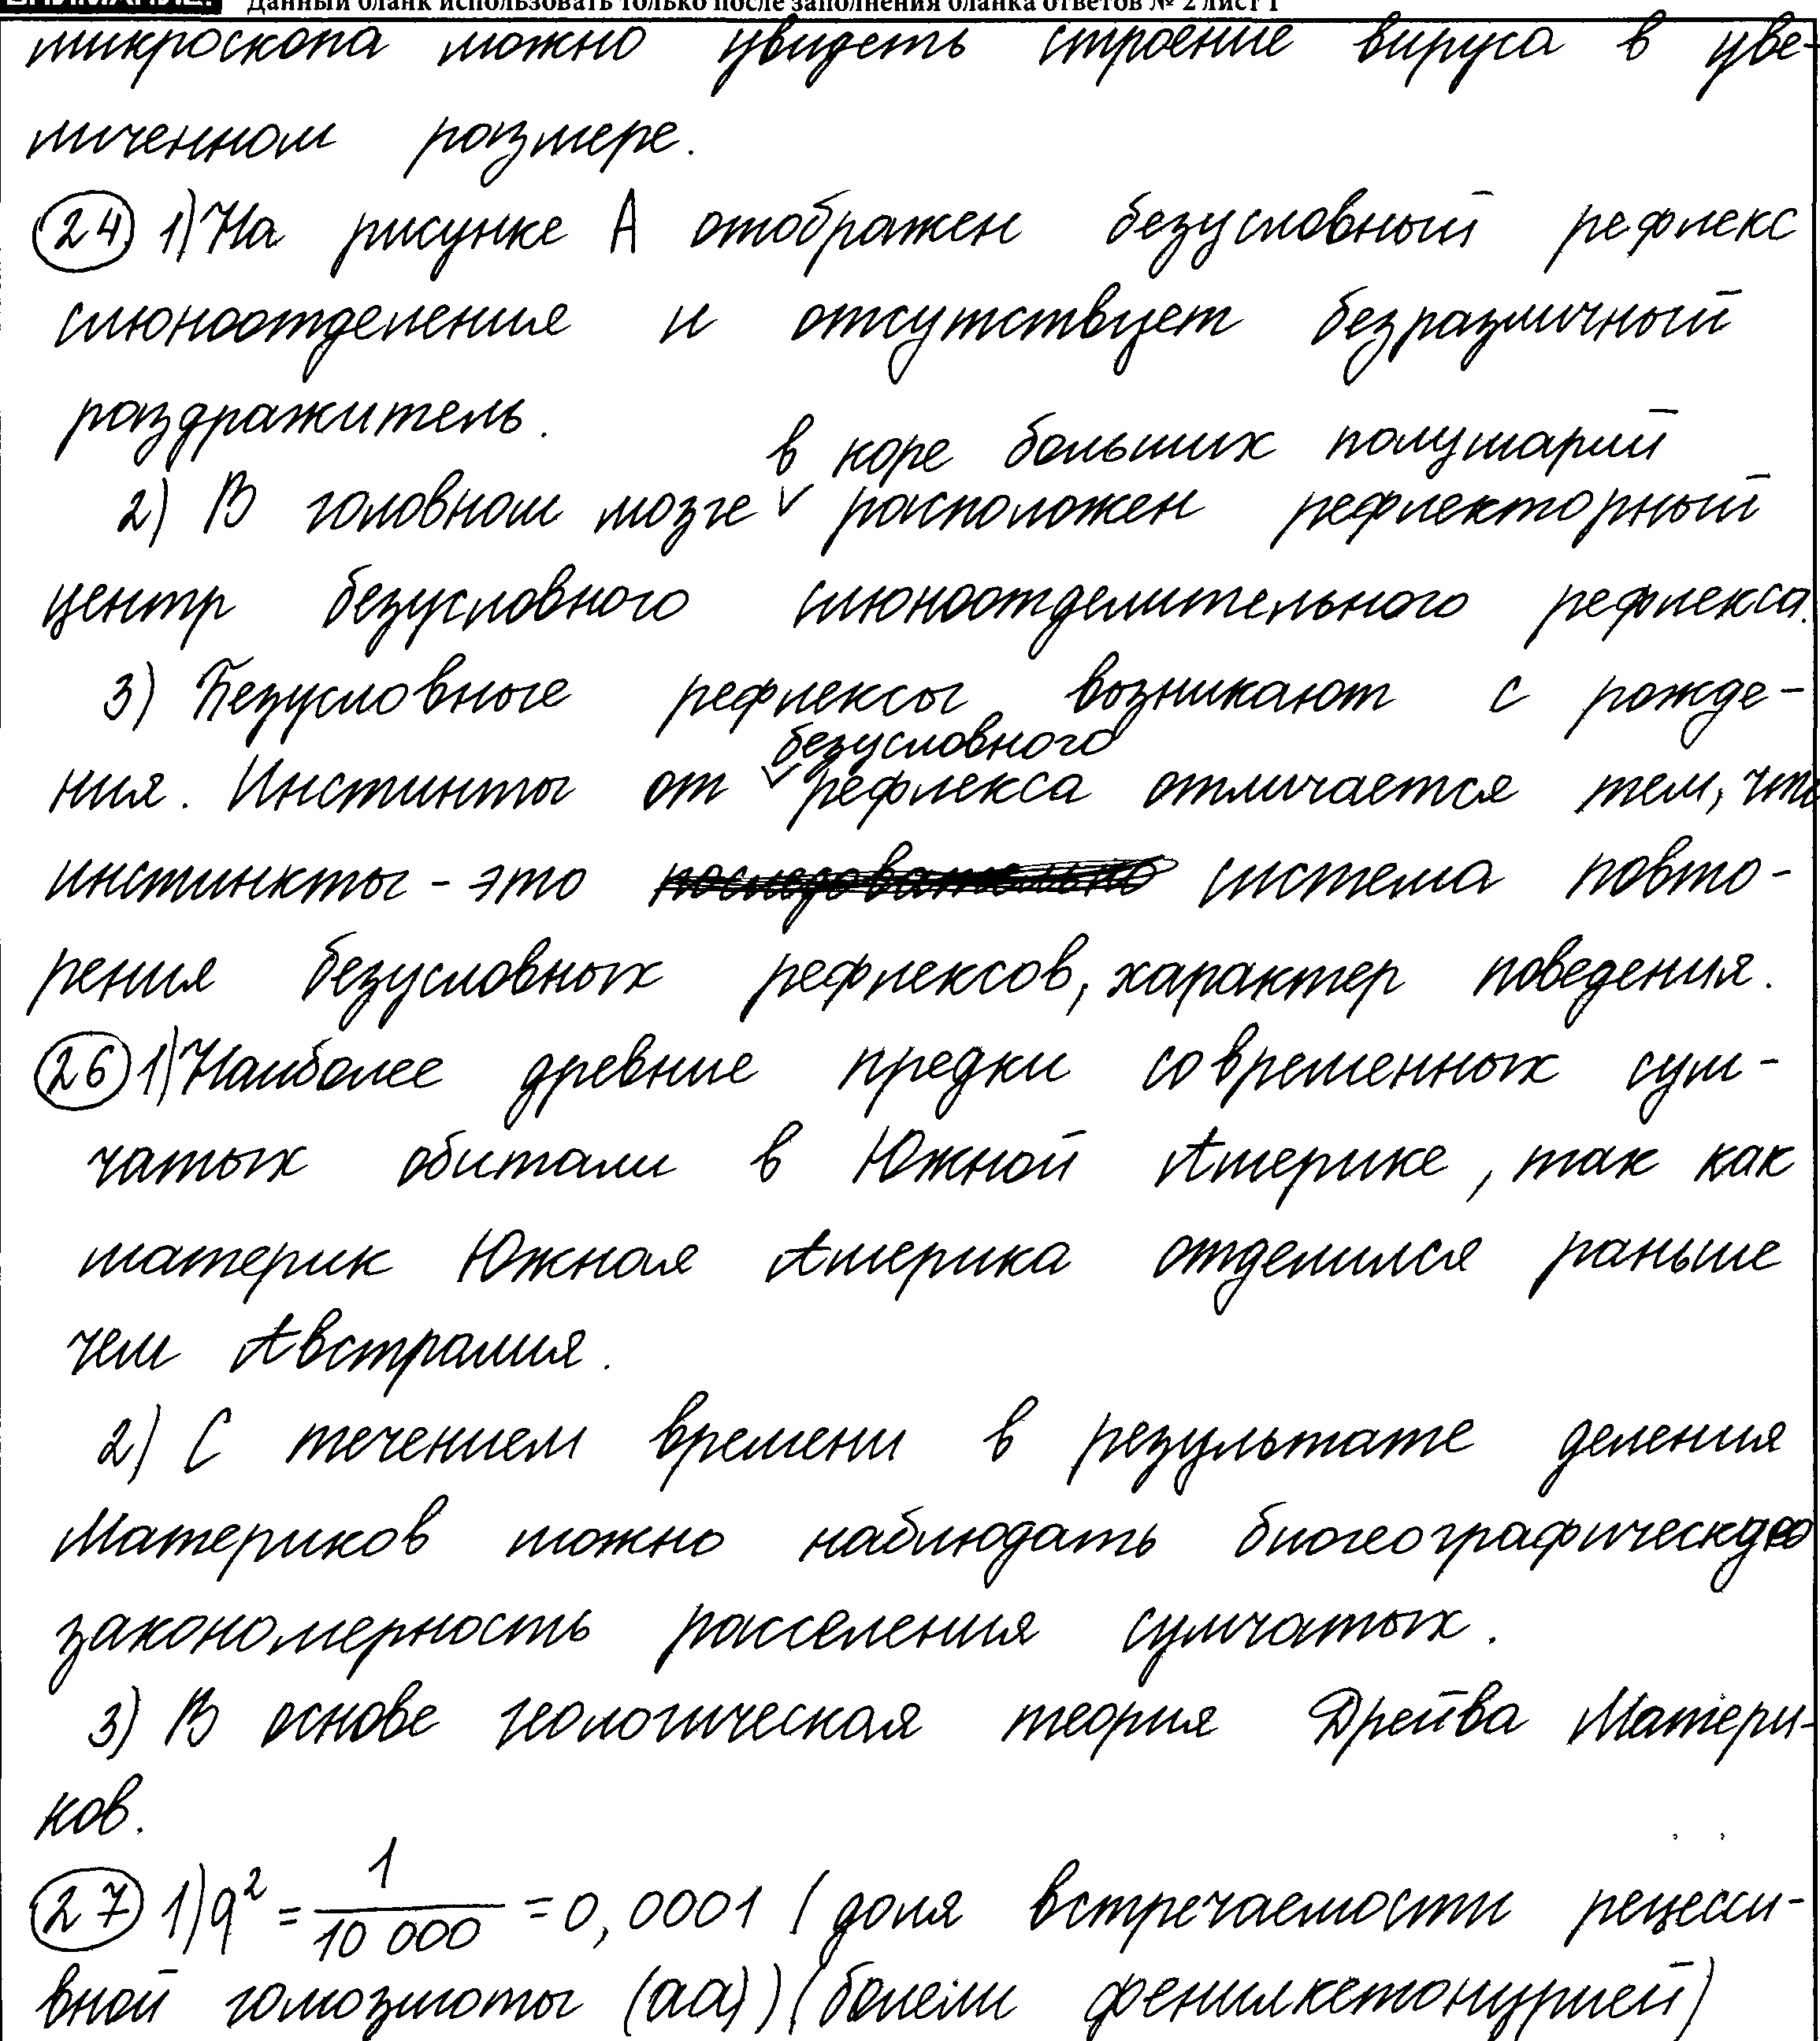 ВНИМАНИЕ! Данный бланк использовать только после заполнения бланка ответов № 2 лист 1
микроскопа можно увидеть строение вируса в уве-
личенном размере.
24 1) На рисунке А отображен безусловный рефлекс
слюноотделения и отсутствует безразличный
раздражитель.
в коре больших полушарий
2) В головном мозге ∨ расположен рефлекторный
центр безусловного слюноотделительного рефлекса.
3) Безусловные рефлексы возникают с рожде-
безусловного
ния. Инстинты от ∨ рефлекса отличается тем, что
инстинкты - это последовательно система повто-
рения безусловных рефлексов, характер поведения.
26 1) Наиболее древние предки современных сум-
чатых обитали в Южной Америке, так как
материк Южная Америка отделился раньше
чем Австралия.
2) С течением времени в результате деления
Материков можно наблюдать биогеографическую
закономерность расселения сумчатых.
3) В основе геологическая теория Дрейва Матери-
ков.
27 1) q² = 1/10 000 = 0,0001 ( доля встречаемости рецесси-
вной гомозиготы (аа)) (болели фенилкетонурией)